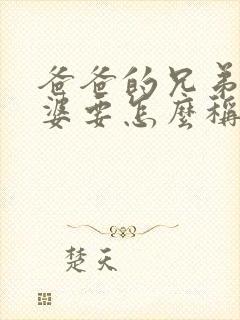 爸爸的兄弟
婆要怎麼稱
楚天